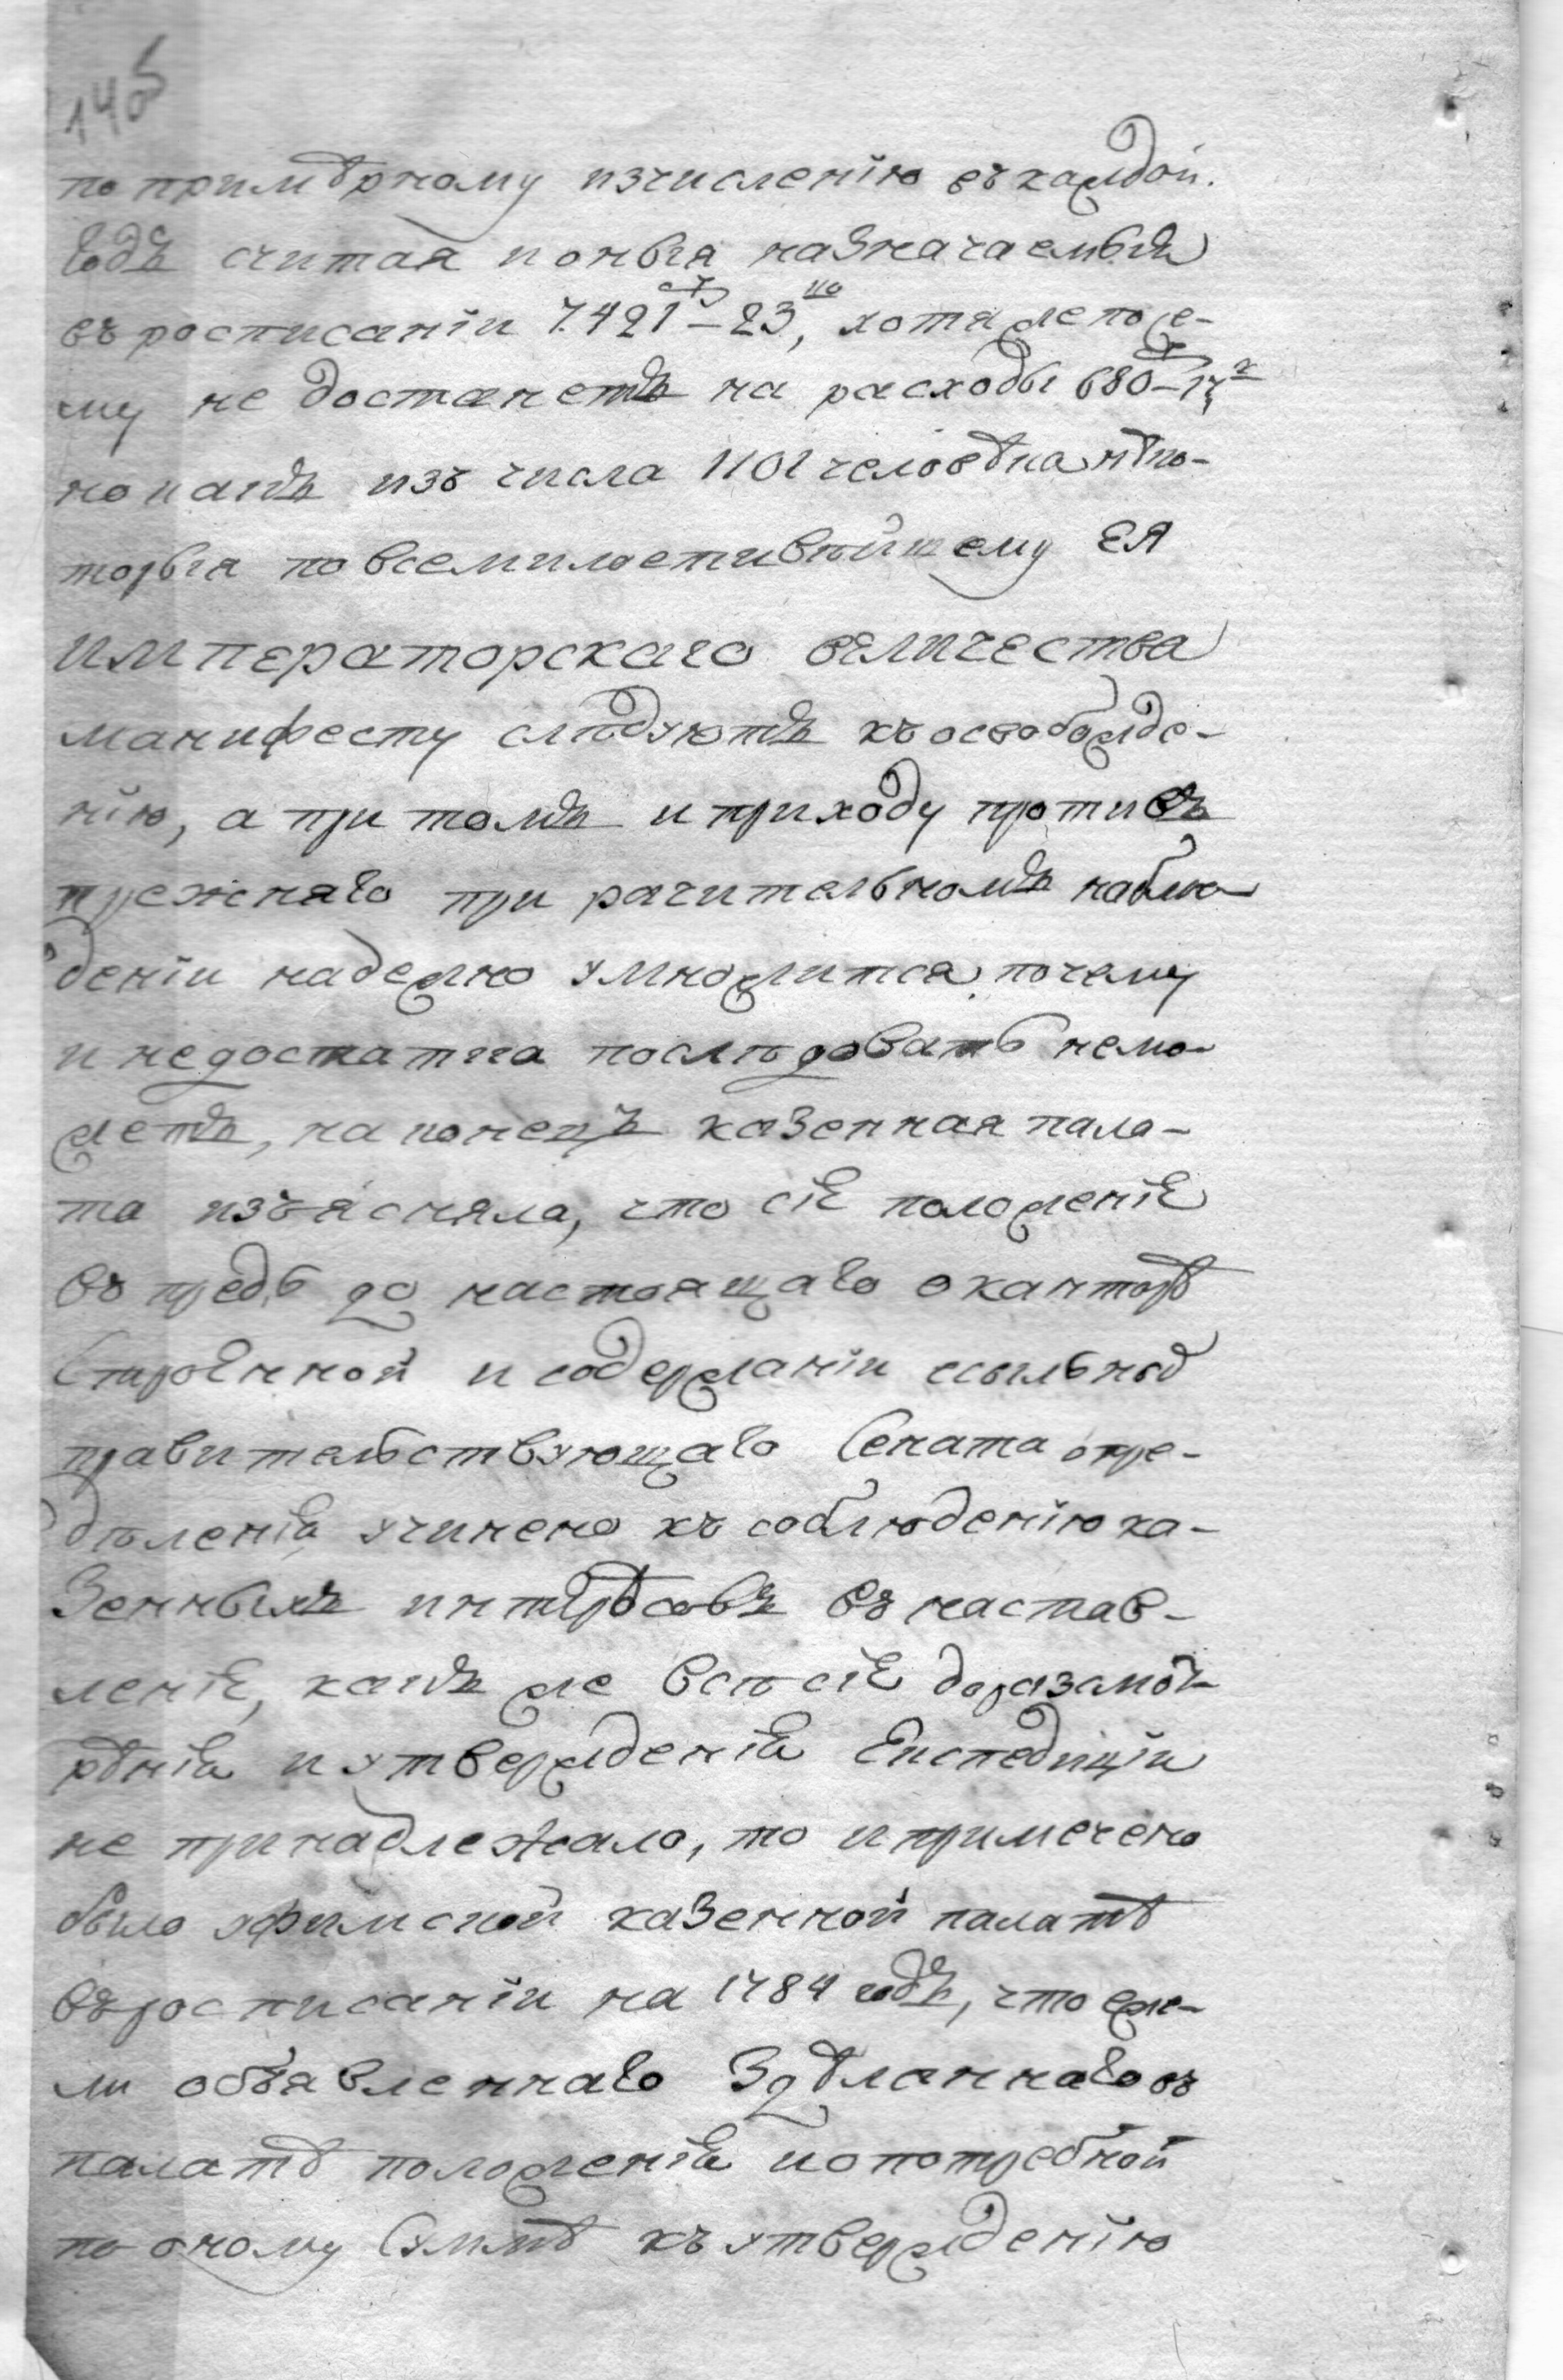 1405
по примѣрному изчисленію въ каждой
годъ считая и оныя назначаемыя
въ росписаніи 7.421 р – 23, хотя же по се-
му не достанетъ на расходы 680 – 17 к
но какъ изъ числа 1101 человѣка нѣко-
торыя по всемилостивѣйшему ЕЯ
ИМПЕРАТОРСКАГО ВЕЛИЧЕСТВА
манифесту слѣдуютъ къ освобожде-
нію, а при томъ и приходу противъ
прежняго при рачительномъ наблю-
деніи надежно умножится, почему
и недостатка послѣдовать немо-
жетъ, на конецъ казенная пала-
та изъясняла, что сіе положеніе
въ предь до настоящаго о канторѣ
Строенной и содержаніи ссыльныхъ
правительствующаго Сената опре-
дѣленія учинено къ соблюденію ка-
зенныхъ интересовъ въ настав-
леніе, какъ же всѣ сіе до разсмот-
рѣнія и утвержденія Експедиціи
не принадлежало, то и примечено
было уфимской казенной палатѣ
въ росписаніи на 1784 годъ, что еже-
ли объявленнаго здѣланнаго въ
палатѣ положенія и о потребной
по оному Суммѣ къ утвержденію